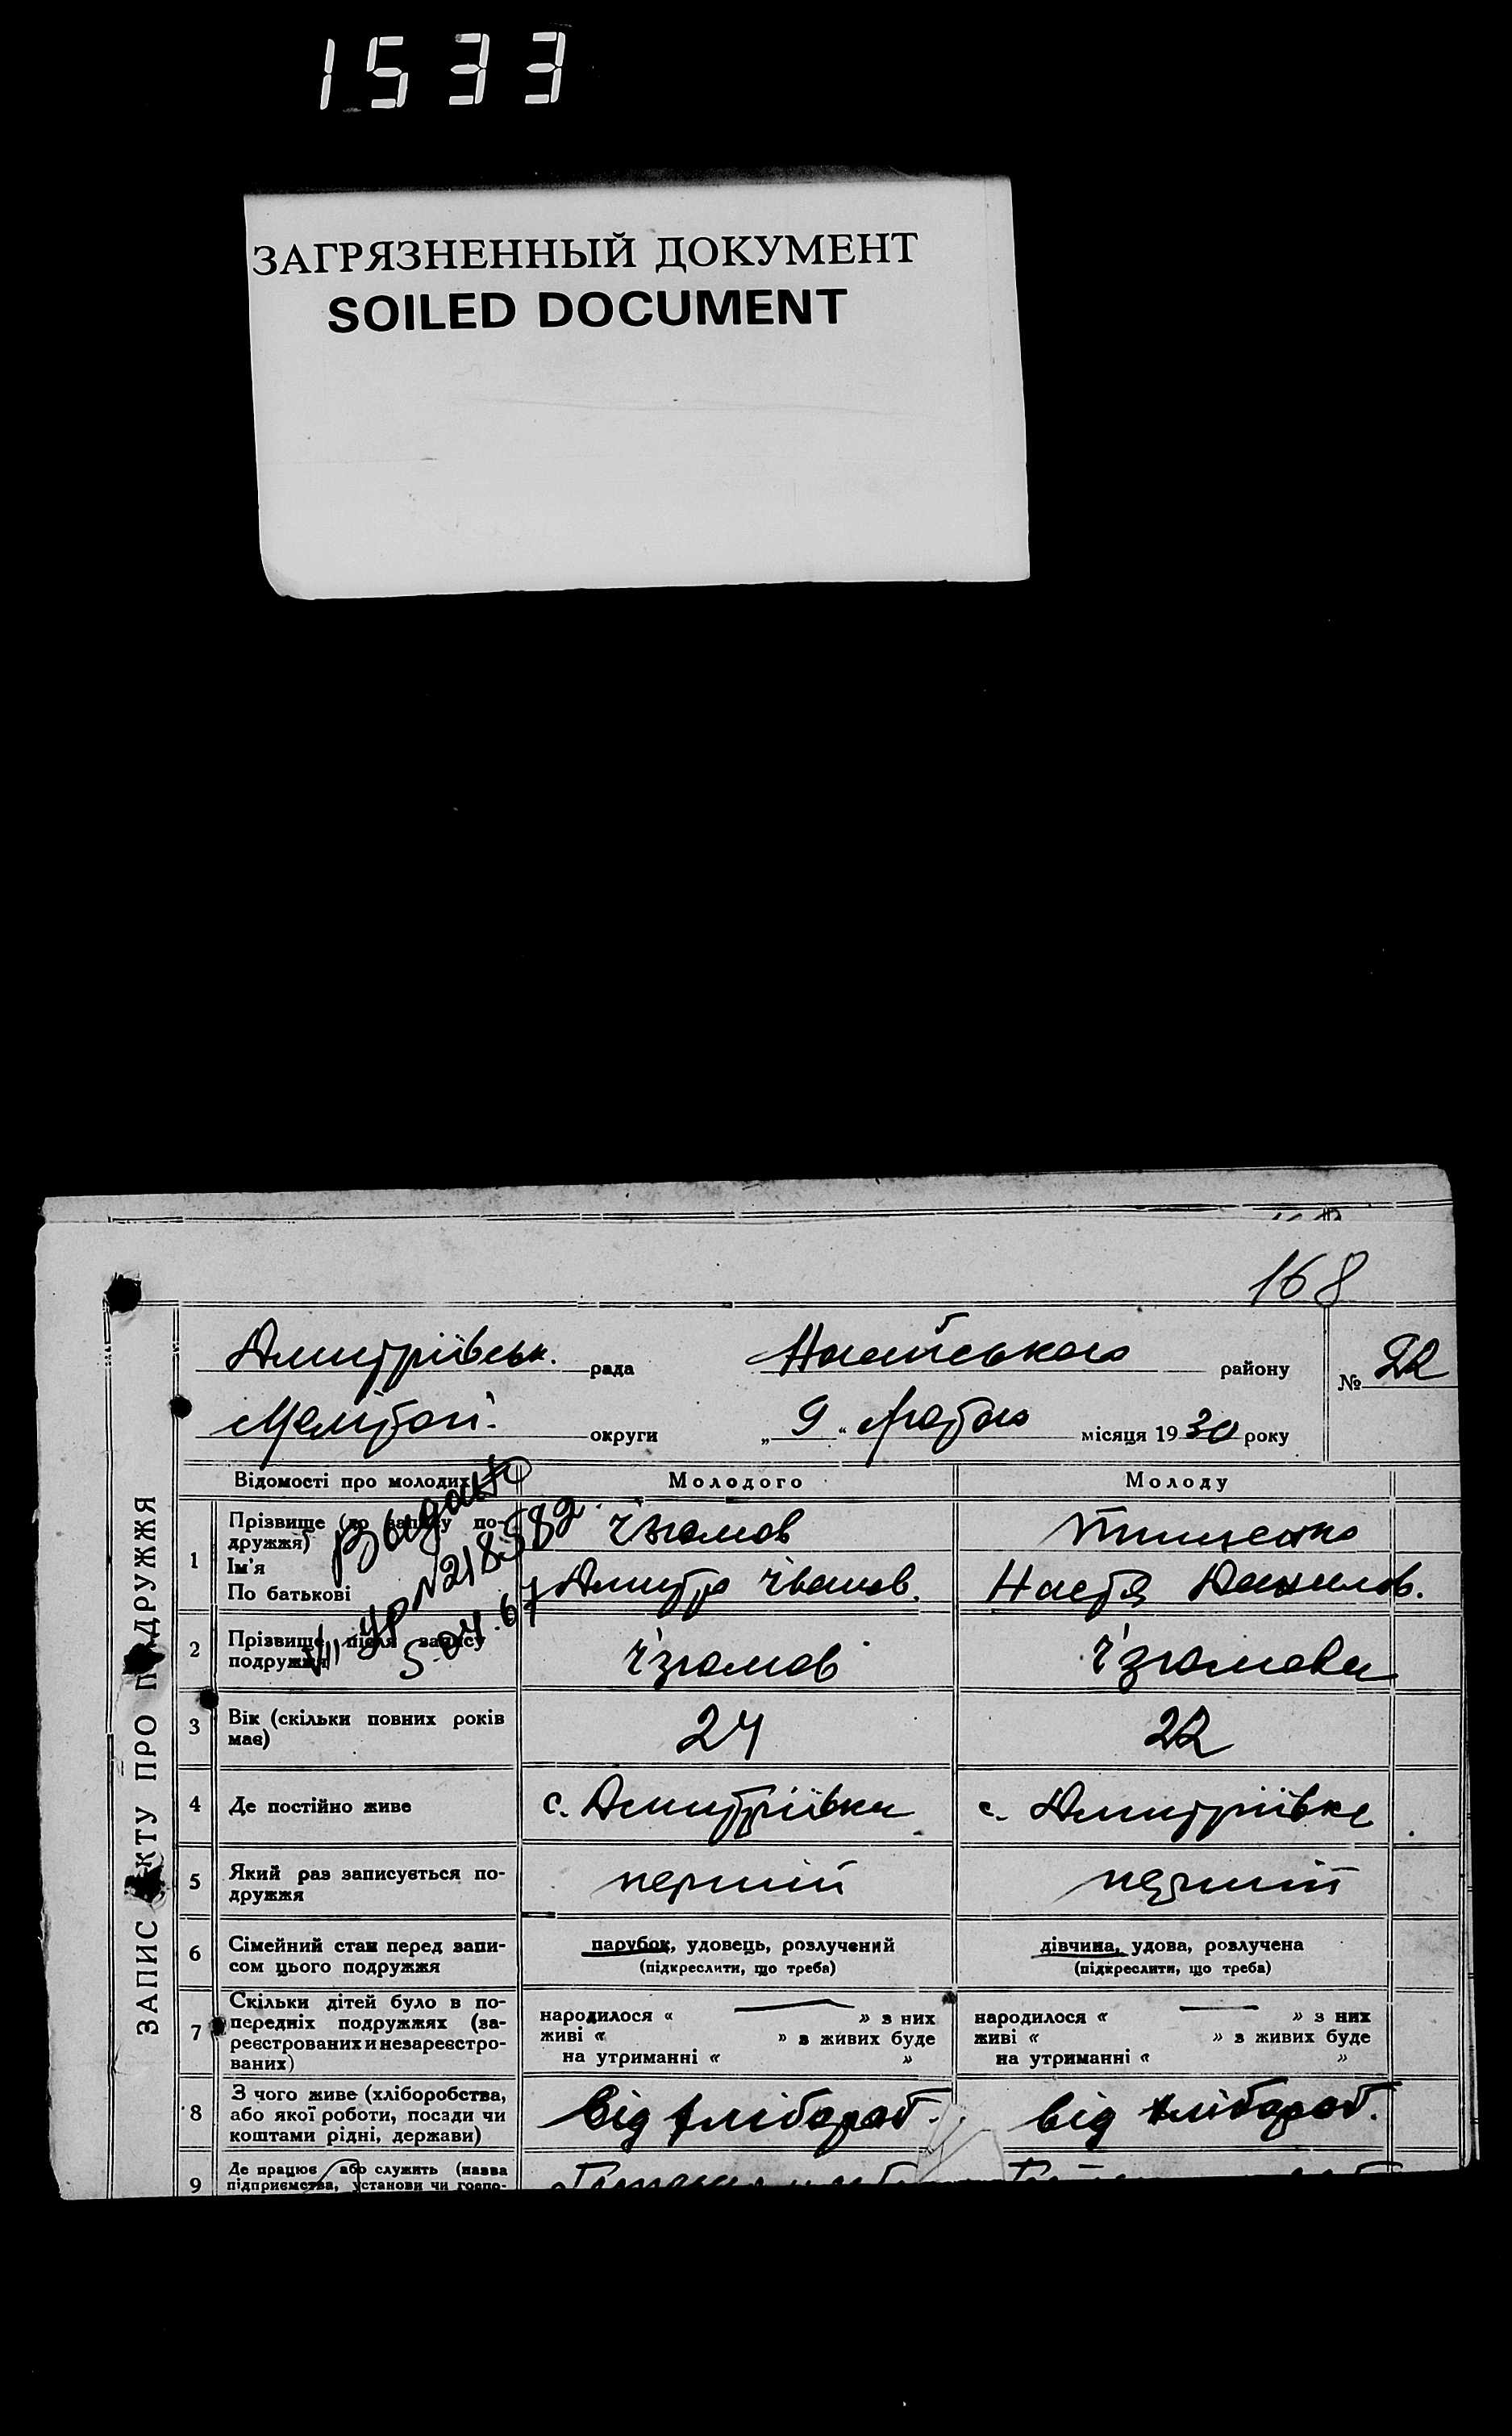 1533
ЗАГРЯЗНЕННЫЙ ДОКУМЕНТ
SOILED DOCUMENT
168
Дмитріївськ. рада Ногайського району № 22
Мелітоп. округи „ 9 “ Лютого місяця 1930 року
ЗАПИС АКТУ ПРО ПОДРУЖЖЯ
Відомості про молодих Молодого Молоду
1 Прізвище (до запису по-
дружжя) Ізюмов Тищенко
Ім'я
По батькові Дмитро Іванов. Настя Данилов.
Видано
VII ЦР № 218582
5-04.67
2 Прізвище після запису
подружжя Ізюмов Ізюмова
3 Вік (скільки повних років
має) 24 22
4 Де постійно живе с. Дмитріївка с. Дмитріївка
5 Який раз записується по-
дружжя перший перший
6 Сімейний стан перед запи-
сом цього подружжя
парубок, удовець, розлучений дівчина, удова, розлучена
(підкреслити, що треба) (підкреслити, що треба)
7 Скільки дітей було в по-
передніх подружжях (за-
реєстрованих и незареєстро-
ваних)
народилося « » з них
живі « » з живих буде
на утриманні « »
народилося « » з них
живі « » з живих буде
на утриманні « »
8 З чого живе (хліборобства,
або якої роботи, посади чи
коштами рідні, держави)
від хлібороб. від хлібороб.
9 Де працює або служить (назва
підприємства, установи чи госпо-